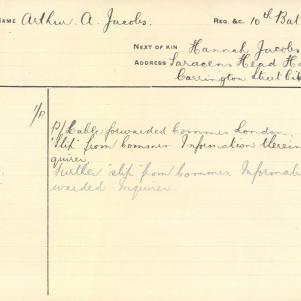 NAME Arthur A. Jacobs. REG. &C. 10th Bat
NEXT OF KIN Hannah Jacobs
ADDRESS Saracens Head Ho
Carrington Street Cit
1/P
P/Cable forwarded Commr London.
"Slip" from Commr Information therein
quirer
Further "slip" from Commr Informati
warded Inquirer.